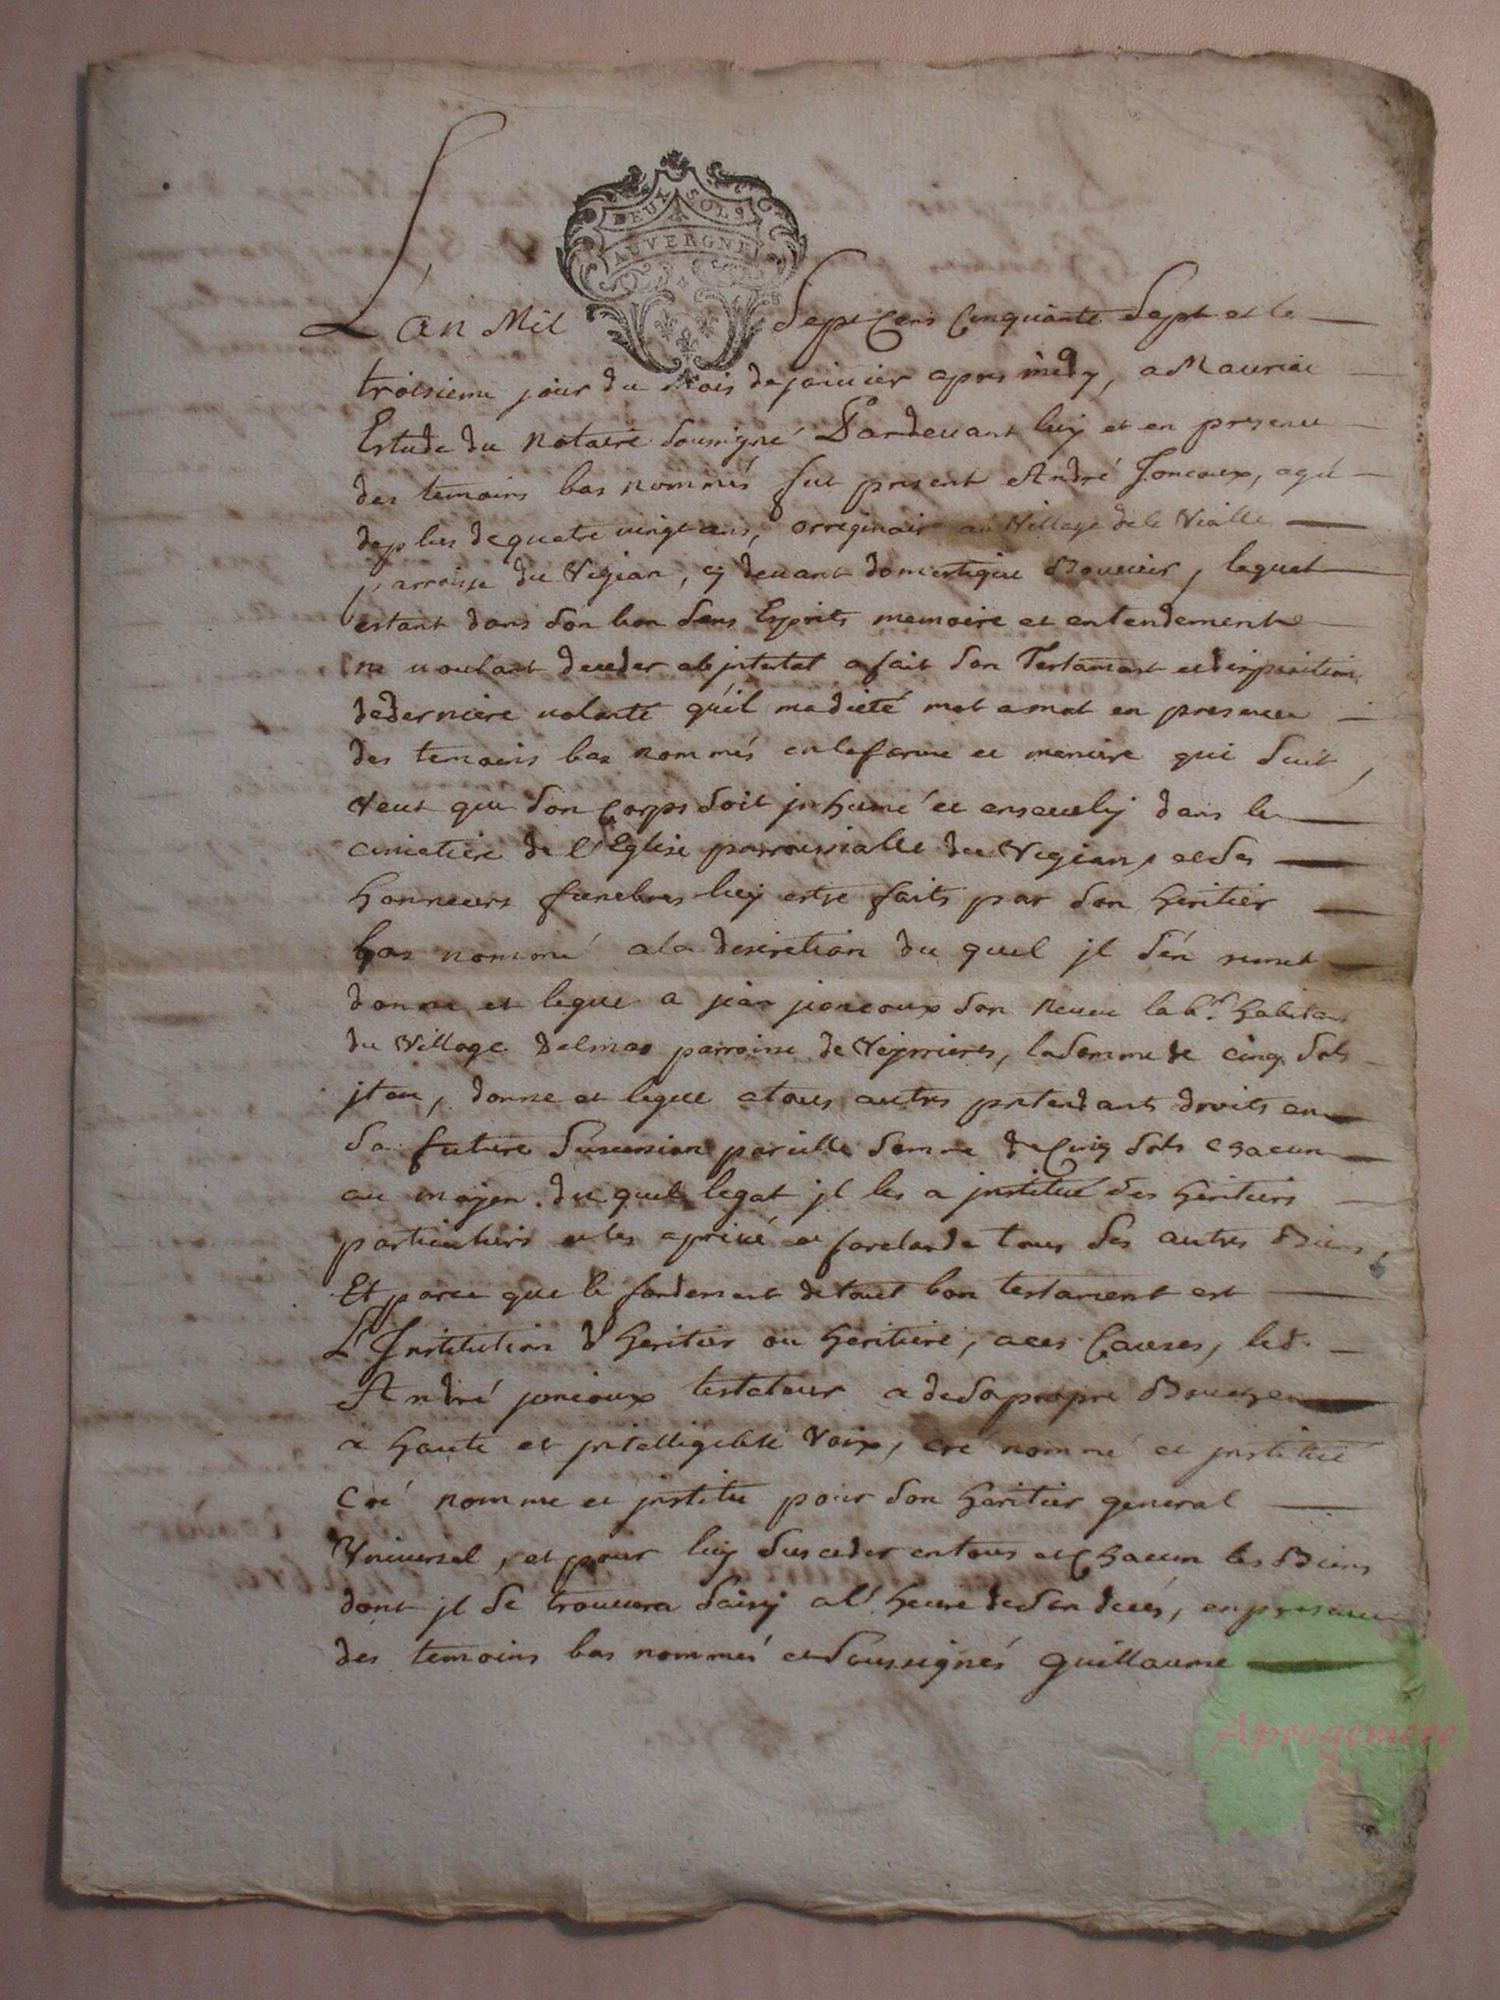 DEUX SOLS
AUVERGNE
L'an Mil Sept Cens Cinquante Sept et le
troisieme jour du Mois de janvier apres midy, a Mauriac
Estude du Notaire soussigné Pardevant luy et en presence
des temoins bas nommés fut present André Joncoux, agé
de plus de quatre vingt ans, orriginair au Village de la Vialle
parroisse du Vigean, cy devant domestique Bouvier, lequel
estant dans son bon sens Esprits memoire et entendement
ne voulant deceder abjntestat a fait son Testament et disposition
de derniere volonté qu'il ma dicté mot a mot en presence
des temoins bas nommés en la forme et maniere qui suit,
Veut que son Corps soit jnhumé et ensevely dans le
cimetiere de l'Eglise parroissialle du Vigean, et des
honneurs funebres luy estre faits par son heritier
bas nommé a la discretion du quel jl s'en remet
donne et legue a jean joncoux son Neveu lab.r habitant
du Village Delmas parroisse de Veyrrieres, la somme de cinq sols
jtem, donne et legue a tous autres pretendants droits en
sa future succession pareille somme de Cinq sols chacun
au moyen du quel legat jl les a jnstitué ses heritiers
particuliers et les a privé et forclos de tous ses autres Biens,
Et parce que le fondement de tout bon testament est
L'Institution d'heritier ou heritiere, a ces Causes, led.
André joncoux testateur a de sa propre Bouche
a haute et jntelligible Voix, cré nommé et jnstitué
Cré nomme et jnstitue pour son heritier general
Universel, et pour luy succeder en tous et Chacun les Biens
dont jl se trouvera saisy a l'heure de son decés, en presence
des temoins bas nommés et soussignés Guillaume
Aprogemere